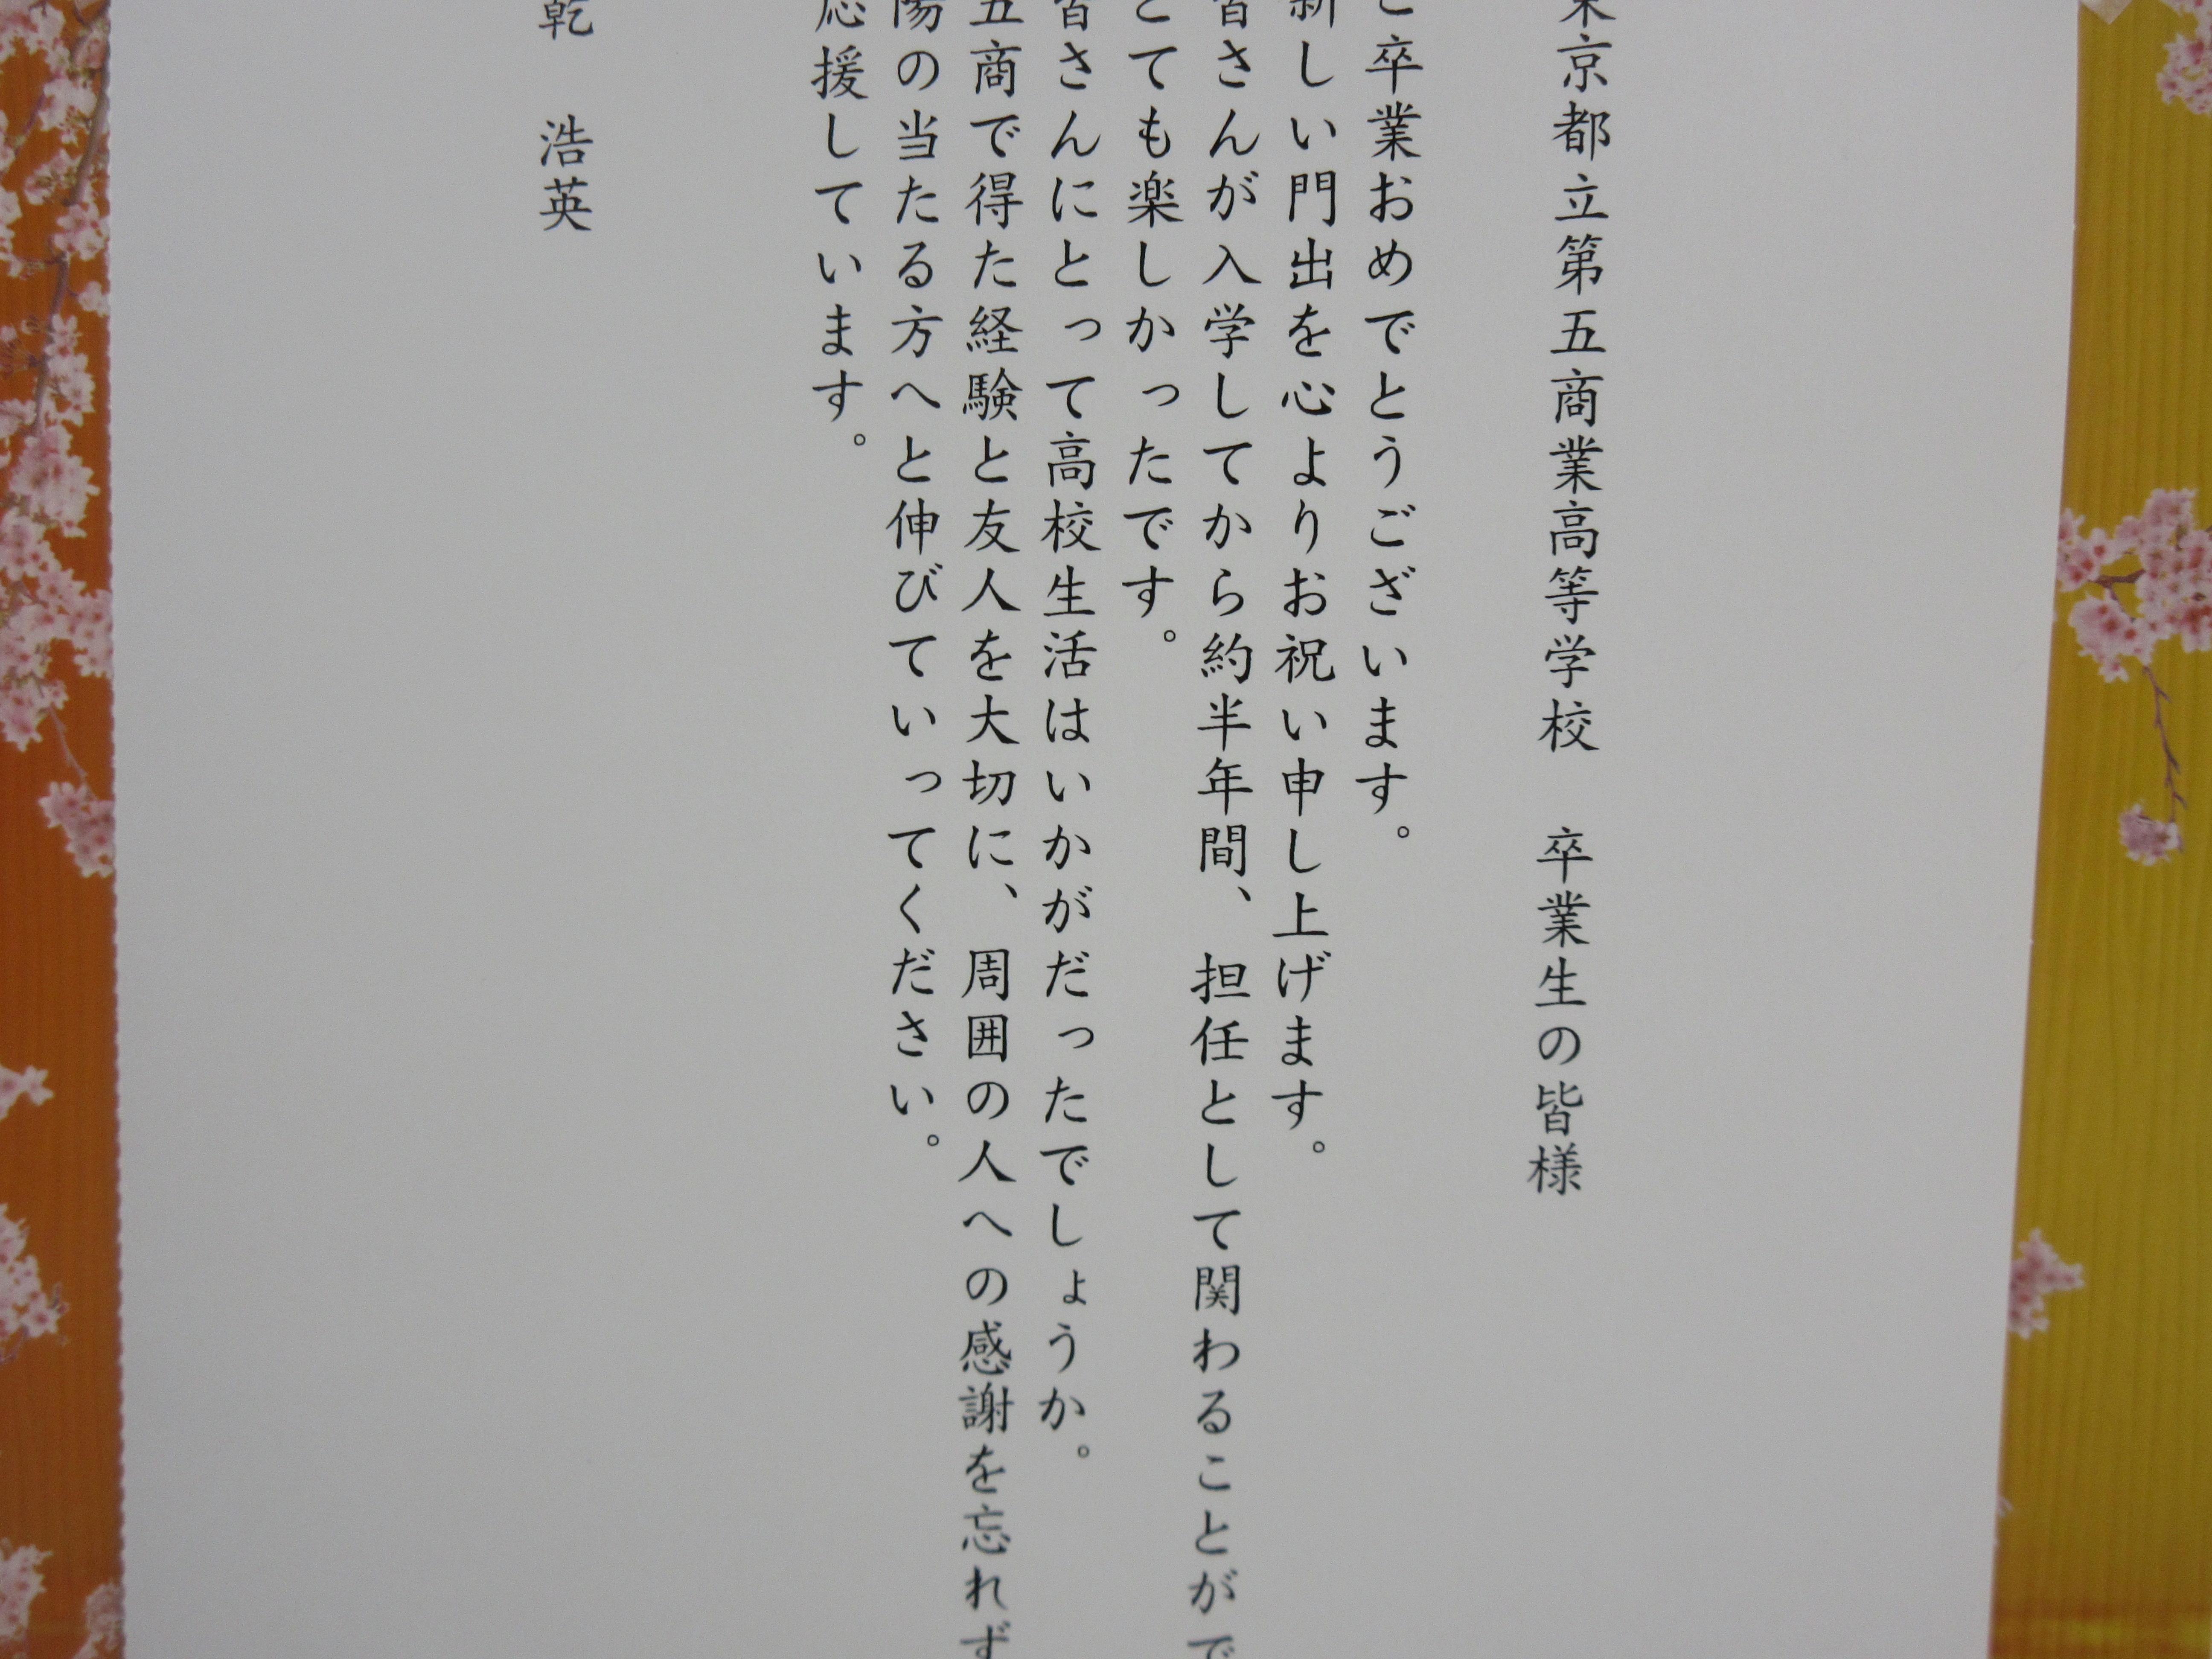 東京都立第五商業高等学校　卒業生の皆様
ご卒業おめでとうございます。
新しい門出を心よりお祝い申し上げます。
皆さんが入学してから約半年間、担任として関わることがで
とても楽しかったです。
皆さんにとって高校生活はいかがだったでしょうか。
五商で得た経験と友人を大切に、周囲の人への感謝を忘れず
陽の当たる方へと伸びていってください。
応援しています。
乾　浩英